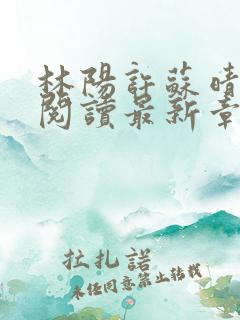 林陽許蘇晴
閱讀最新章
拉扎諾
未經同意禁止轉載